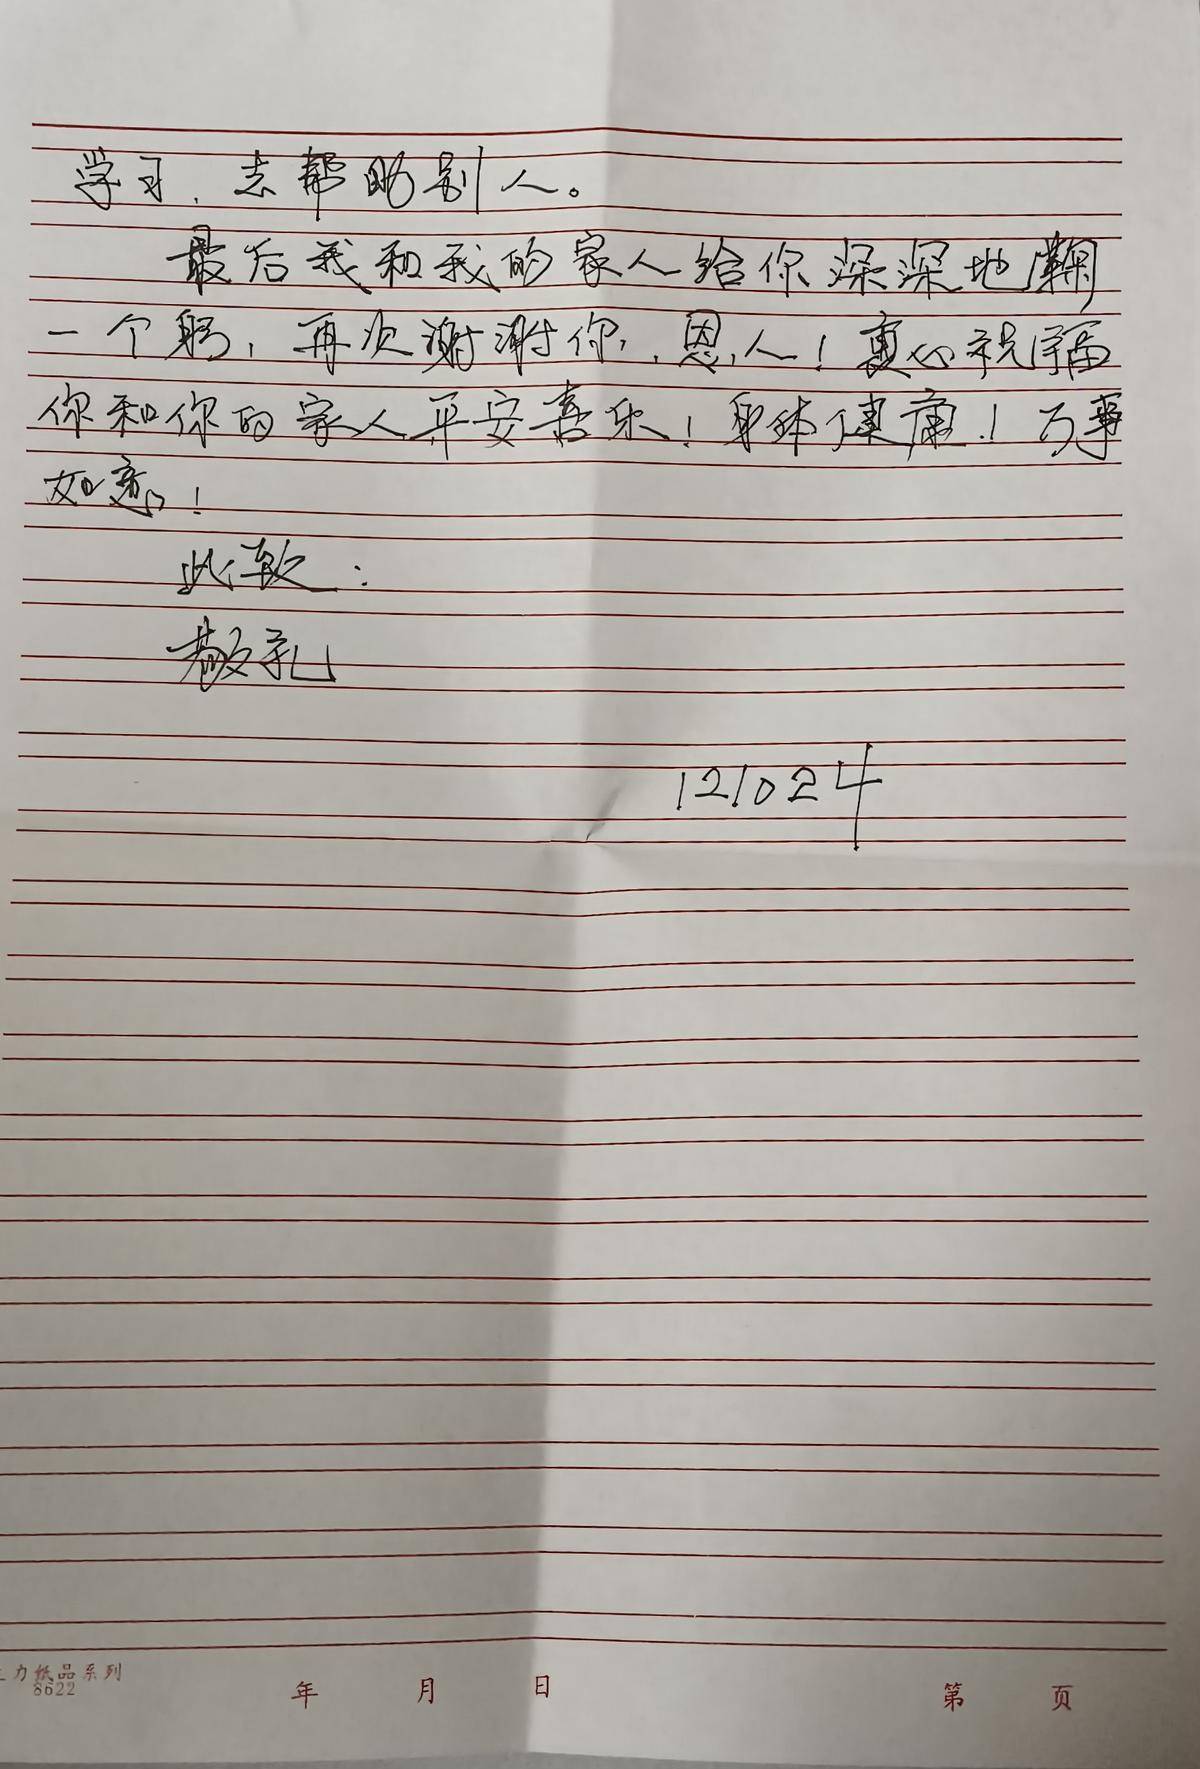 学习，去帮助别人。
最后我和我的家人给你深深地鞠
一个躬，再次谢谢你，恩人！衷心祝福
你和你的家人平安喜乐！身体健康！万事
如意！
此致：
敬礼
121024
力纸品系列
8622
年 月 日 第 页